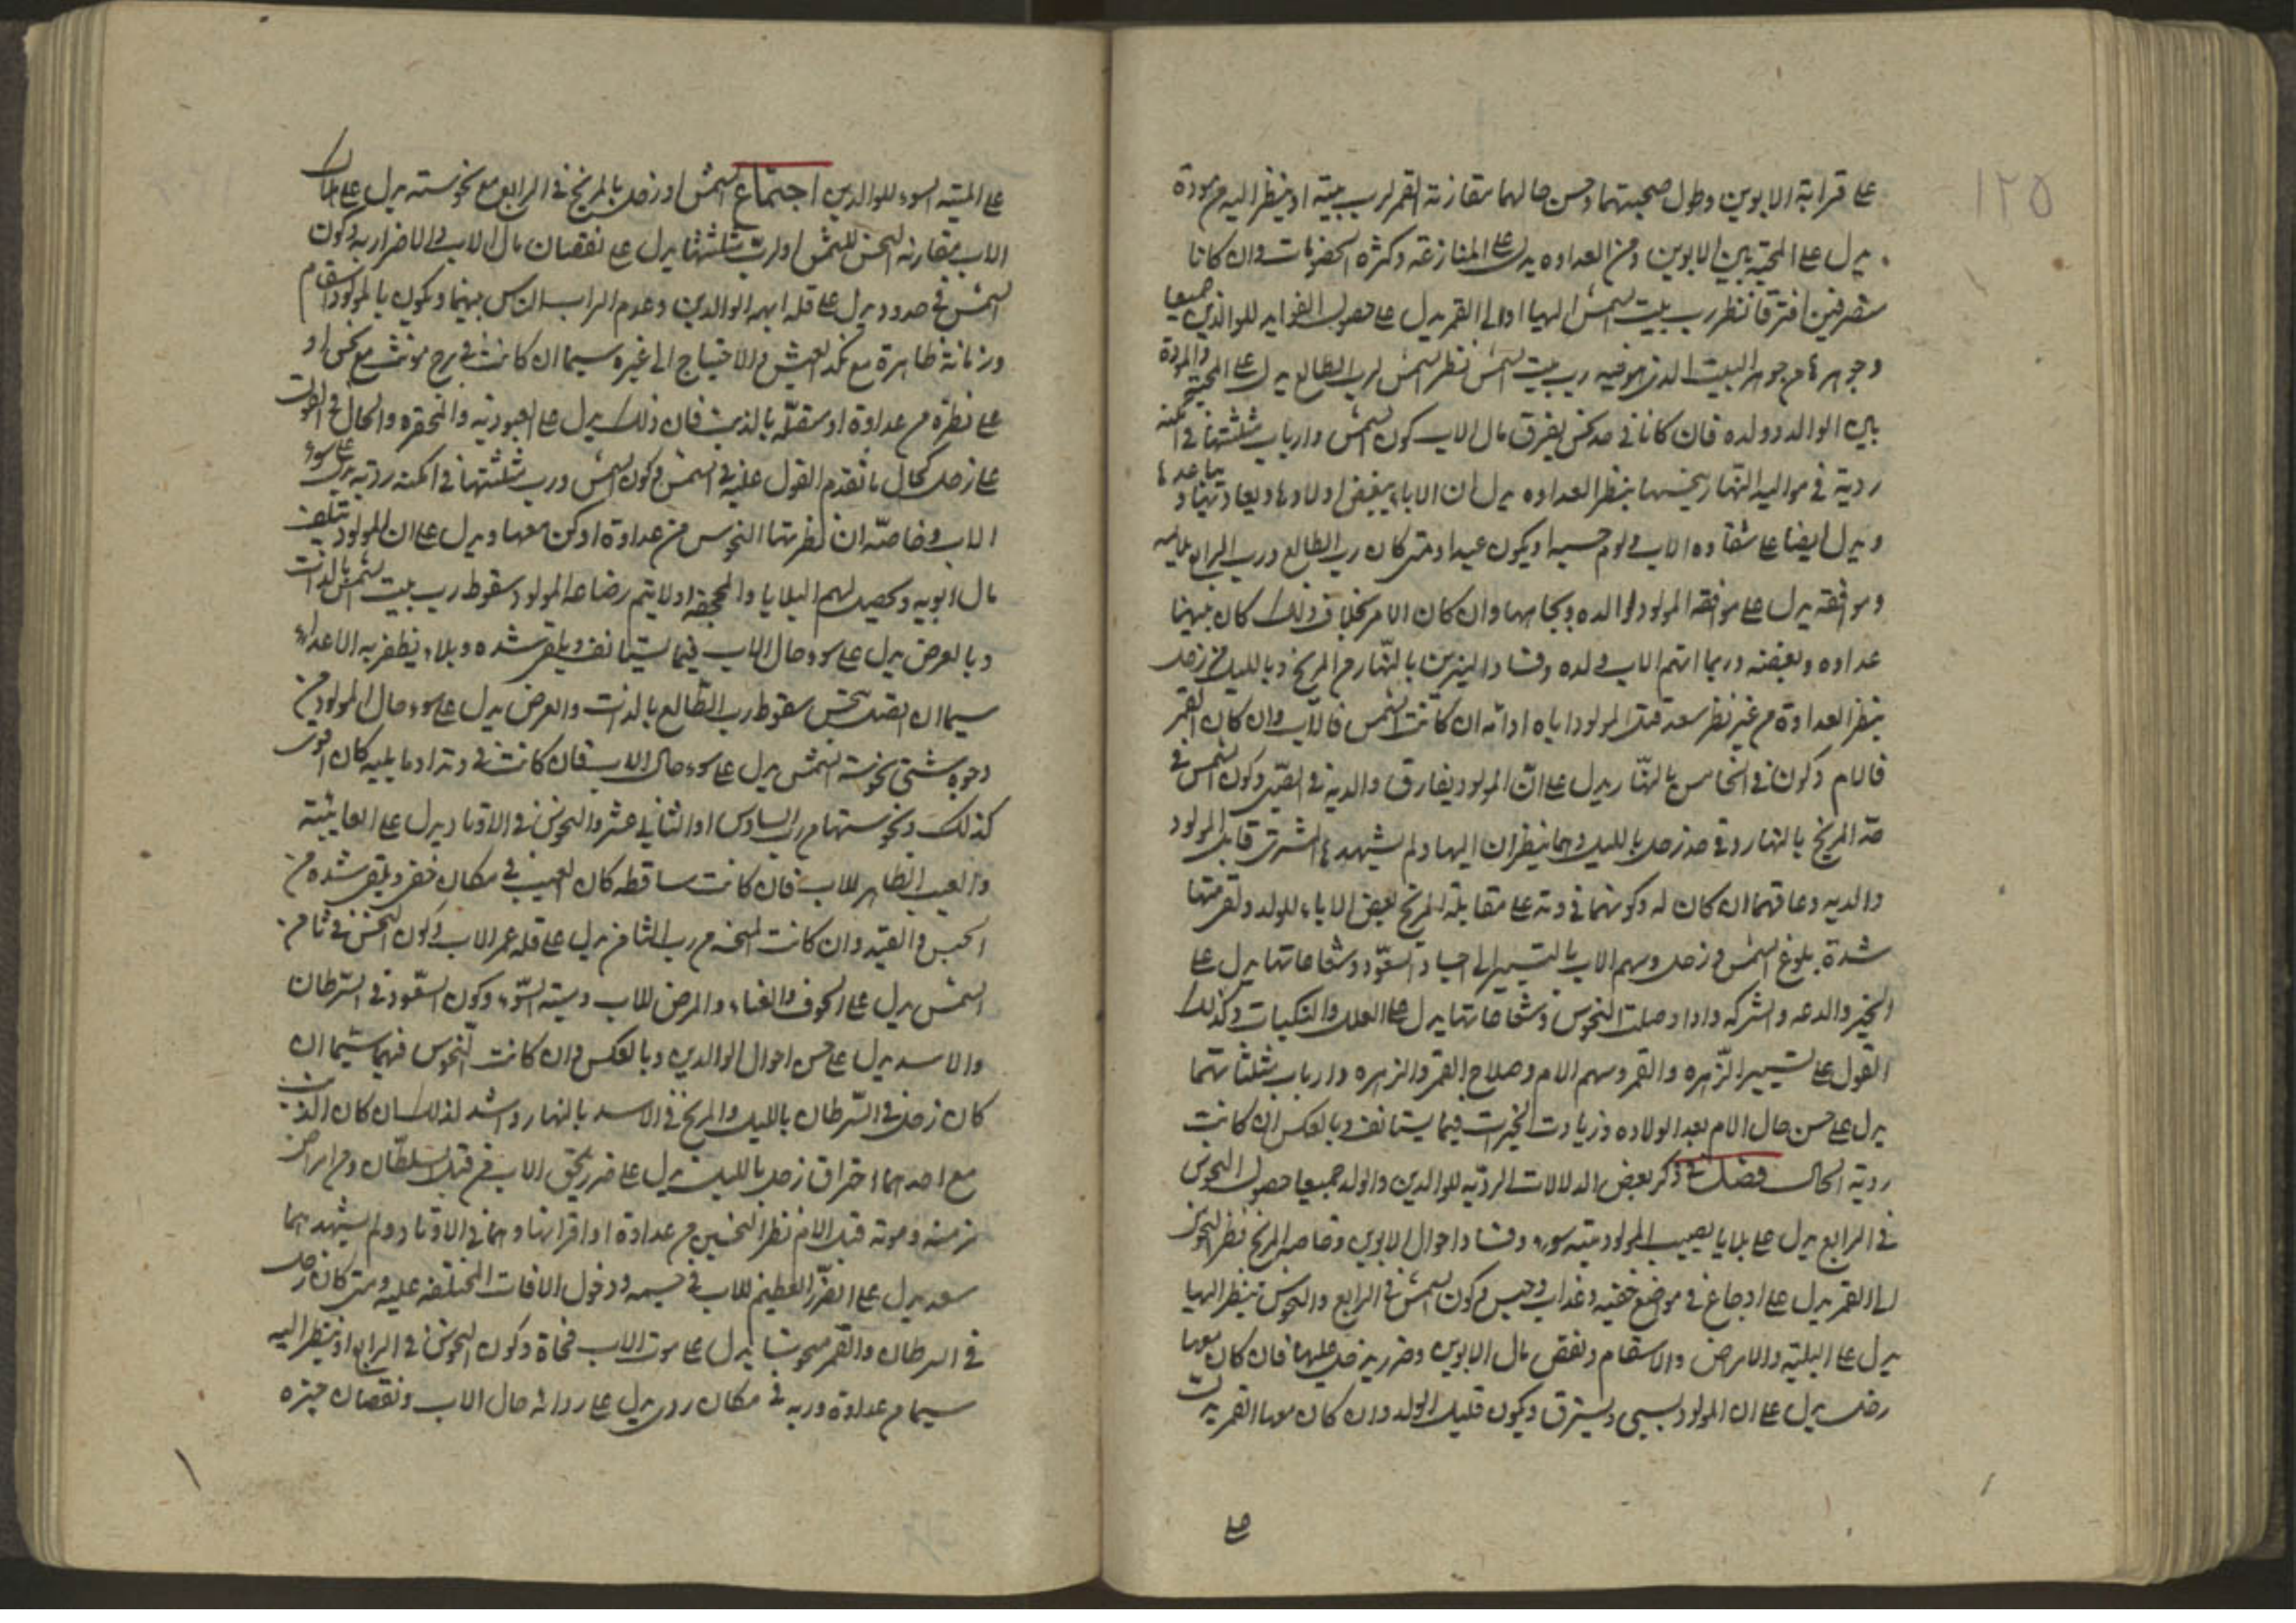 ١٢٥
على قرابة الابوين وطول صحبتهما وحسن حالهما مقارنة القمر لرب بيته او ينظر اليه من مودة
يدل على المحبة بين الابوين ومن العداوه يدل على المنازعة وكثرة الخصومات وان كانا
منصرفين افترقا نظر رب بيت الشمس اليها او الى القمر يدل على حصول الفوايد للوالدين جميعا
وجوهرها من جوهر البيت الذى هو فيه رب بيت الشمس نظر الشمس لرب الطالع يدل على المحبة والمودة
بين الوالد وولده فان كانا فى حد نحس يفرق مال الاب كون الشمس وارباب مثلثتها فى امكنه
ردية فى مواليد النهار ونحسها بنظر العداوه يدل ان الاباء يبغض اولادها ويعاديها و يباعدها
ويدل ايضا على شقاوه الاب ولوم حسبه او يكون عبدا ومتى كان رب الطالع ورب الرابع
وموافقه يدل على موافقه المولود لوالده ونجابتها وان كان الامر بخلاف ذلك كان بينهما
عداوه وبغضه وربما اتهم الاب ولده وفساد النيرين بالنهار من المريخ وبالليل من زحل
بنظر العداوة من غير نظر سعد قتل المولود اباه او امه ان كانت الشمس فالاب وان كان القمر
فالام وكون فى الخامس بالنهار يدل على ان المولود يفارق والديه فى الصبى وكون الشمس فى
حد المريخ بالنهار وفى حد زحل بالليل وهما ينظران اليها ولم يشهدها المشترى قاتل المولود
والديه وعاقهما ان كان له وكونهما فى وتد على مقابلة المريخ بغض الاباء للولد ولقى منهما
شدة بلوغ الشمس وزحل وسهم الاب بالتسيير الى اجساد السعود وشعاعاتها يدل على
الخير والدعه والشركه واذا وصلت النحوس وشعاعاتها يدل على العلل والنكبات وكذلك
القول على تسيير الزهره والقمر وسهم الام وصلاح القمر والزهره وارباب مثلثاتهما
يدل على حسن حال الام بعد الولاده وزيادت الخيرات فيما يستانف وبالعكس ان كانت
ردية الحال فصل فى ذكر بعض الدلالات الردية للوالدين والولد جميعا حصول النحوس
فى الرابع يدل على بلايا يصيب المولود وميته سوء وفساد احوال الابوين وخاصه المريخ نظر النحوس
الى القمر يدل على اوجاع فى مواضع خفيه وعذاب وحبس وكون الشمس فى الرابع والنحوس ينظر اليها
يدل على البلية والامراض والاسقام ونقص مال الابوين وضرر يدخل عليها فان كان معها
زحل يدل على ان المولود يسبى ويسترق ويكون قليل الولد وان كان معها القمر يدل
على الميتة السوء للوالدين اجتماع الشمس او زحل بالمريخ فى الرابع مع نحوسته يدل على هلاك
الاب مقارنه النحس للشمس او لرب مثلثتها يدل على نقصان مال الاب والاضرار به وكون
الشمس فى حدود يدل على قله ابهه الوالدين وعدم الناس بينهما ويكون بالمولود اسقام
وزمانة ظاهرة مع نكد العيش والاحتياج الى غيره سيما ان كانت فى برج مونث مع نحس او
على نظره من عداوة او متصلة بالذنب فان ذلك يدل على العبودية والمحقره والحال فى القول
على زحل كحال ما تقدم القول عليه فى الشمس وكون الشمس ورب مثلثتها فى امكنه ردية يدل على سوء
الاب وخاصة ان نظرتها النحوس من عداوة او كن معها ويدل على ان المولود يتلف
مال ابويه وتحصل لهم البلايا ولا يتم رضاعه المولود سقوط رب بيت الشمس بالذات
وبالعرض يدل على سوء حال الاب فيما يستانف ويلقى شده وبلاء ويظفر به الاعداء
سيما ان اتصل بنحس سقوط رب الطالع بالذات والعرض يدل على سوء حال المولود من
وجوه شتى نحوسة الشمس يدل على سوء حال الاب فان كانت فى وتد او ما يليه كان اقوى
كذلك ونحوستها من رب السادس او الثانى عشر والنحوس فى الاوتاد يدل على العاهة
والعيب الظاهر للاب فان كانت ساقطه كان العيب فى مكان خفى ويلقى شده من
الحبس والقيد وان كانت المنحسه من رب الثامن يدل على قله عمر الاب وكون النحس فى ثامن
الشمس يدل على الخوف والفناء والمرض للاب وميته السوء وكون السعود فى السرطان
والاسد يدل على حسن احوال الوالدين وبالعكس وان كانت النحوس فيهما سيما ان
كان زحل فى السرطان بالليل والمريخ فى الاسد بالنهار واشد لذلك ان كان الذنب
مع احدهما احتراق زحل بالليل يدل على ضرر يلحق الاب من قبل السلطان ومن امراض
مزمنه وموته قبل الام نظر النحسين من عداوة او اقترانها وهما فى الاوتاد ولم يشهدهما
سعد يدل على الضرر العظيم للاب فى جسمه ودخول الافات المختلفه عليه ومتى كان زحل
فى السرطان والقمر منحوسا يدل على موت الاب فجاة وكون النحوس فى الرابع او ينظر اليه
سيما من عداوة وربه فى مكان ردى يدل على رداءة حال الاب ونقصان خيره